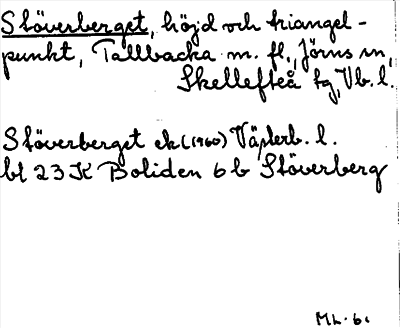 Stöverberget, höjd och triangel-
punkt, Tallbacka m. fl., Jörns sn,
Skellefteå tg, Vb. l.
Stöverberget ek (1960) Västerb. l.
bl 23 K Boliden 6 b Stöverberg